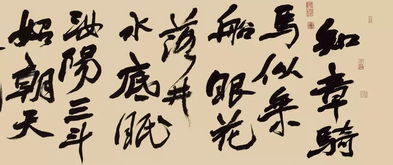 知章騎
馬似乘
船眼花
落井
水底眠
汝陽三斗
始朝天